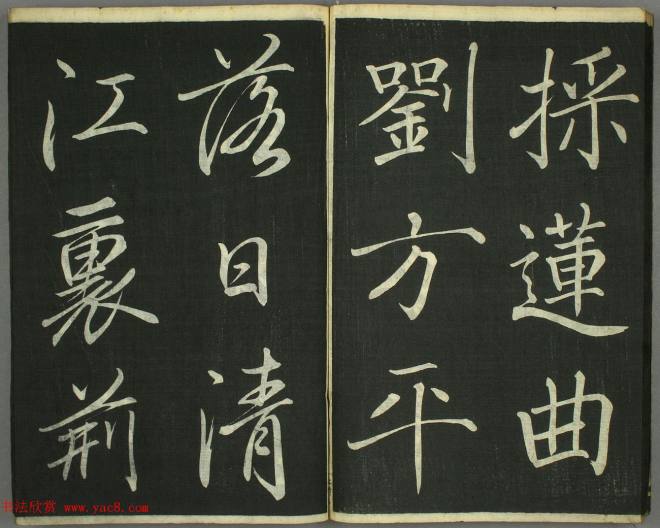 採蓮曲
劉方平
落日清
江裏荊
书法欣赏 www.yac8.com